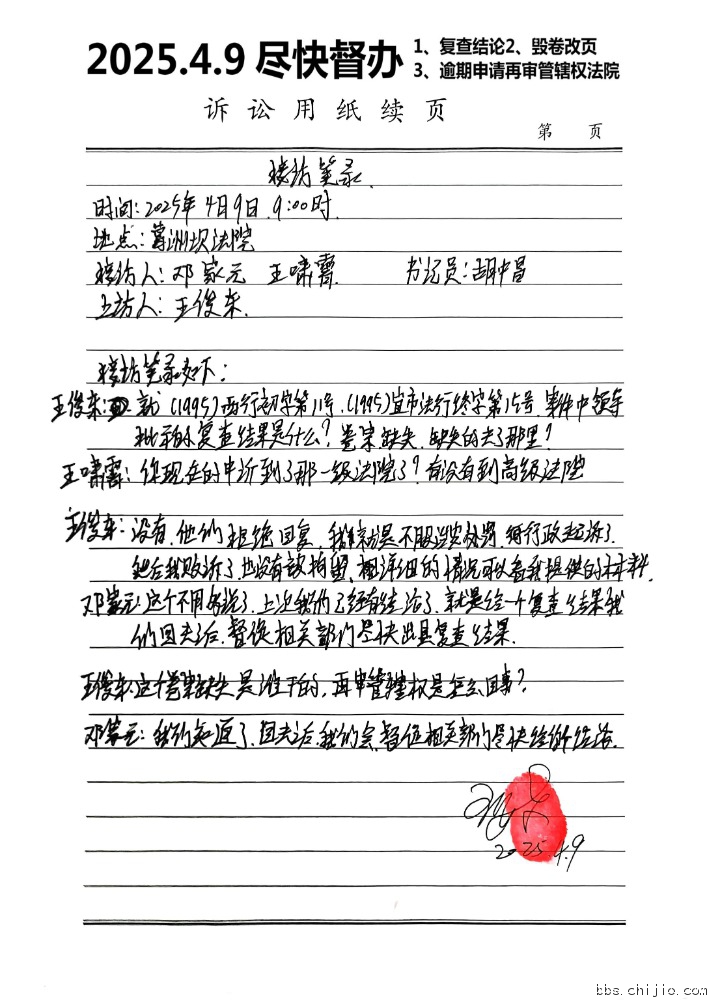 2025.4.9 尽快督办
1、复查结论2、毁卷改页
3、逾期申请再审管辖权法院
诉讼用纸续页
第 页
接访笔录
时间:2025年4月9日.9:00时.
地点:葛洲坝法院
接访人:邓家元 王啸霄 书记员:胡中昌
上访人:王俊东.
接访笔录如下:
王俊东: 就(1995)西行初字第11号.(1995)宜市法行终字第15号.案件中领导
批示的复查结果是什么?卷宗缺失.缺失的去了那里?
王啸霄:你现在的申诉到了那一级法院了?有没有到高级法院
王俊东:没有.他们拒绝回复.我就是不服 处罚. 行政起诉了.
后我败诉了.也没有 拘留. 详细的情况可以看我提供的材料.
邓家元:这个不用多说了.上次我们已经有结论了.就是给一个复查结果我
们回去后.督促相关部门尽快出具复查结果.
王俊东:这个卷宗缺失是谁干的,再审管辖权是怎么回事?
邓家元:我们知道了.回去后.我们会督促相关部门尽快给你结论.
2025.4.9
bbs.chijio.com